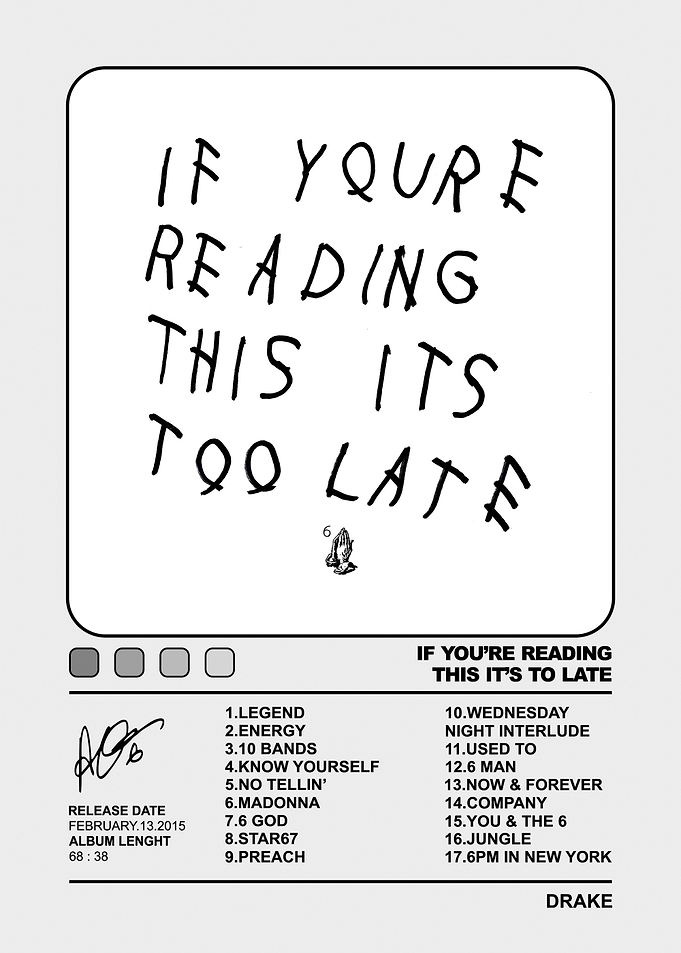 IF YOURE
READING
THIS ITS
TOO LATE
6
IF YOU'RE READING
THIS IT'S TO LATE
RELEASE DATE
FEBRUARY.13.2015
ALBUM LENGHT
68 : 38
1.LEGEND
2.ENERGY
3.10 BANDS
4.KNOW YOURSELF
5.NO TELLIN'
6.MADONNA
7.6 GOD
8.STAR67
9.PREACH
10.WEDNESDAY
NIGHT INTERLUDE
11.USED TO
12.6 MAN
13.NOW & FOREVER
14.COMPANY
15.YOU & THE 6
16.JUNGLE
17.6PM IN NEW YORK
DRAKE